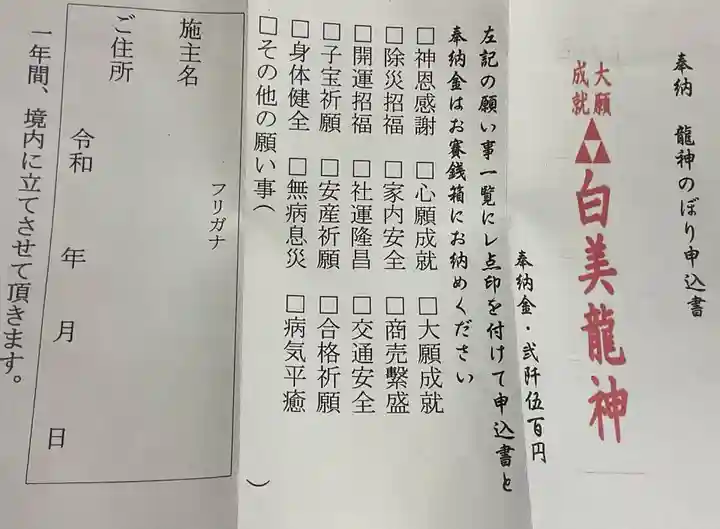 奉納 龍神のぼり申込書
大願成就
白美龍神
奉納金・弐阡伍百円
左記の願い事一覧にレ点印を付けて申込書と
奉納金はお賽銭箱にお納めください
□神恩感謝 □心願成就 □大願成就
□除災招福 □家内安全 □商売繫盛
□開運招福 □社運隆昌 □交通安全
□子宝祈願 □安産祈願 □合格祈願
□身体健全 □無病息災 □病気平癒
□その他の願い事( )
フリガナ
施主名
ご住所
令和 年 月 日
一年間、境内に立てさせて頂きます。